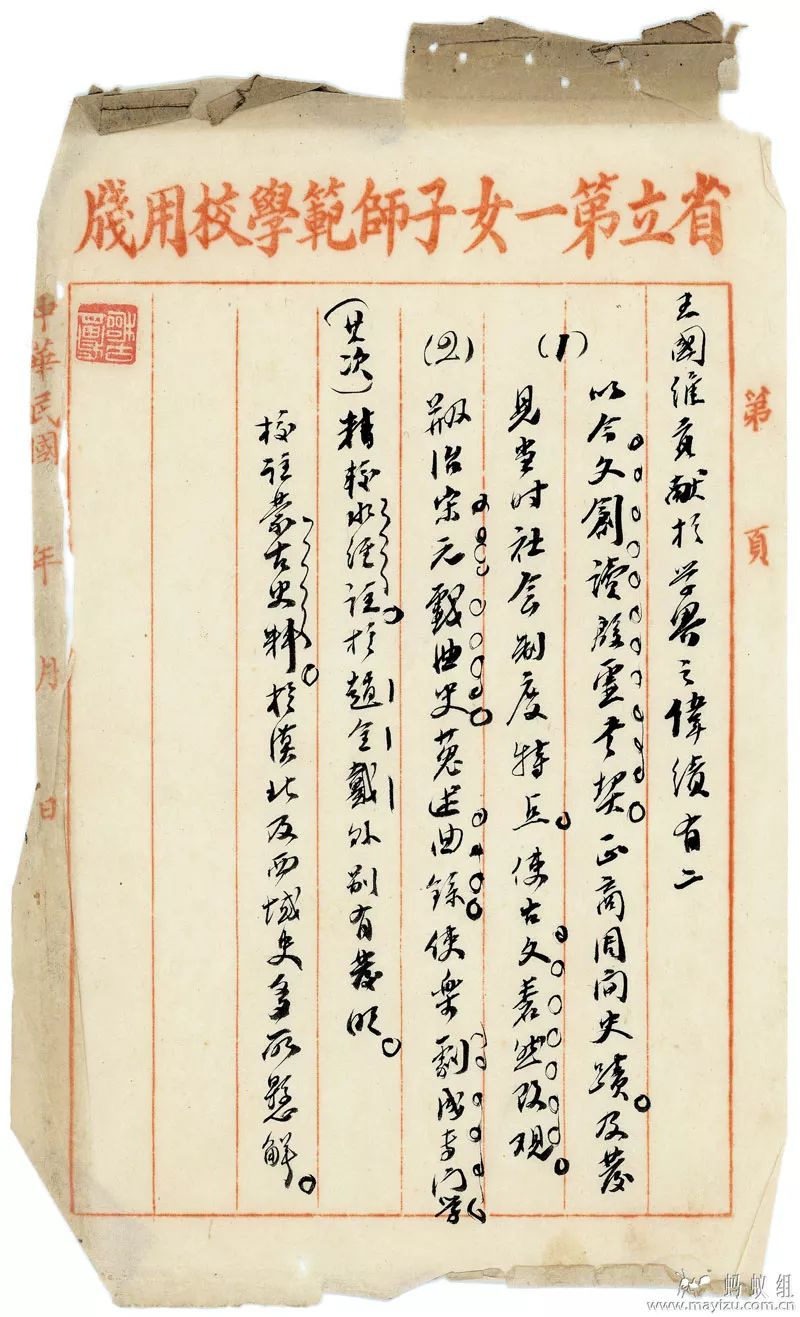 省立第一女子師範學校用牋
第 頁
王國維貢献於学界之偉績有二
(1) 以今文創讀殷虚书契。正商周间史蹟。及發
見当时社会制度特点。使古文砉然改观。
(2) 治宋元戲曲史。蒐述曲錄。使樂劇成专门学
(其次) 精校水经註。於趙全戴外别有發明。
校註蒙古史料。於漠北及西域史多所懸解。
中華民國 年 月 日
蚂蚁组
www.mayizu.com.cn